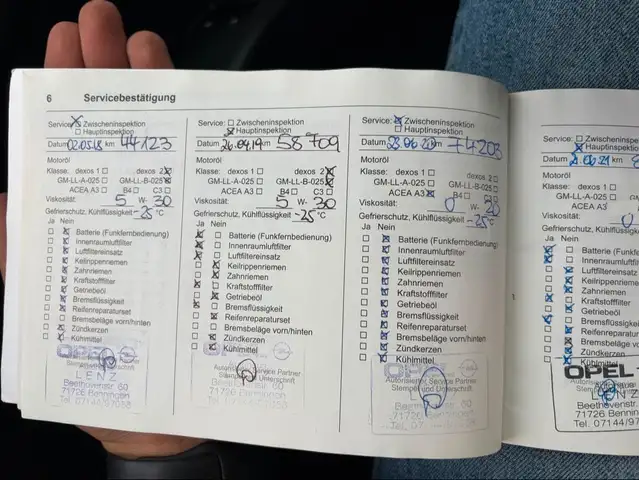 6 Servicebestätigung
Service: ☒ Zwischeninspektion
☐ Hauptinspektion
Datum 02.05.18 km 44123
Motoröl
Klasse: dexos 1 ☐ dexos 2 ☒
GM-LL-A-025 ☐ GM-LL-B-025 ☒
ACEA A3 ☐ B4 ☐ C3 ☐
Viskosität: 5 W- 30
Gefrierschutz, Kühlflüssigkeit -25 °C
Ja Nein
Batterie (Funkfernbedienung)
Innenraumluftfilter
Luftfiltereinsatz
Keilrippenriemen
Zahnriemen
Kraftstofffilter
Getriebeöl
Bremsflüssigkeit
Reifenreparaturset
Bremsbeläge vorn/hinten
Zündkerzen
Kühlmittel
OPEL
LENZ
Beethovenstr. 60
71726 Benningen
Service: ☐ Zwischeninspektion
☒ Hauptinspektion
Datum 26.04.19 km 58709
Motoröl
Klasse: dexos 1 ☐ dexos 2 ☒
GM-LL-A-025 ☐ GM-LL-B-025 ☒
ACEA A3 ☐ B4 ☐ C3 ☐
Viskosität: 5 W- 30
Gefrierschutz, Kühlflüssigkeit -25 °C
Ja Nein
Batterie (Funkfernbedienung)
Innenraumluftfilter
Luftfiltereinsatz
Keilrippenriemen
Zahnriemen
Kraftstofffilter
Getriebeöl
Bremsflüssigkeit
Reifenreparaturset
Bremsbeläge vorn/hinten
Zündkerzen
Kühlmittel
Autorisierter Service Partner
Stempel und Unterschrift
LENZ
Beethovenstr. 60
71726 Benningen
Service: ☒ Zwischeninspektion
☐ Hauptinspektion
Datum km
Motoröl
Klasse: dexos 1 ☐ dexos 2 ☐
GM-LL-A-025 ☐ GM-LL-B-025 ☐
ACEA A3 ☒ B4
Viskosität: 0 W- 20
Gefrierschutz, Kühlflüssigkeit -25 °C
Ja Nein
Batterie (Funkfernbedienung)
Innenraumluftfilter
Luftfiltereinsatz
Keilrippenriemen
Zahnriemen
Kraftstofffilter
Getriebeöl
Bremsflüssigkeit
Reifenreparaturset
Bremsbeläge vorn/hinten
Zündkerzen
Kühlmittel
OPEL
Autorisierter Service Partner
Stempel und Unterschrift
LENZ
Beethovenstr. 60
71726 Benningen
Service: ☐ Zwischeninspektion
☒ Hauptinspektion
Datum
Motoröl
Klasse: dexos 1 ☐
GM-LL-A-025 ☐
ACEA A3
Viskosität: 0
Gefrierschutz, Kühlflüssigkeit
Ja Nein
Batterie (Funkf
Innenraumluftfilter
Luftfiltereinsatz
Keilrippenriemen
Zahnriemen
Kraftstofffilter
Getriebeöl
Bremsflüssigkeit
Reifenreparaturset
Bremsbeläge vorn
Zündkerzen
Kühlmittel
OPEL
LENZ
Beethovenstr. 6
71726 Benning
Tel. 07144/97